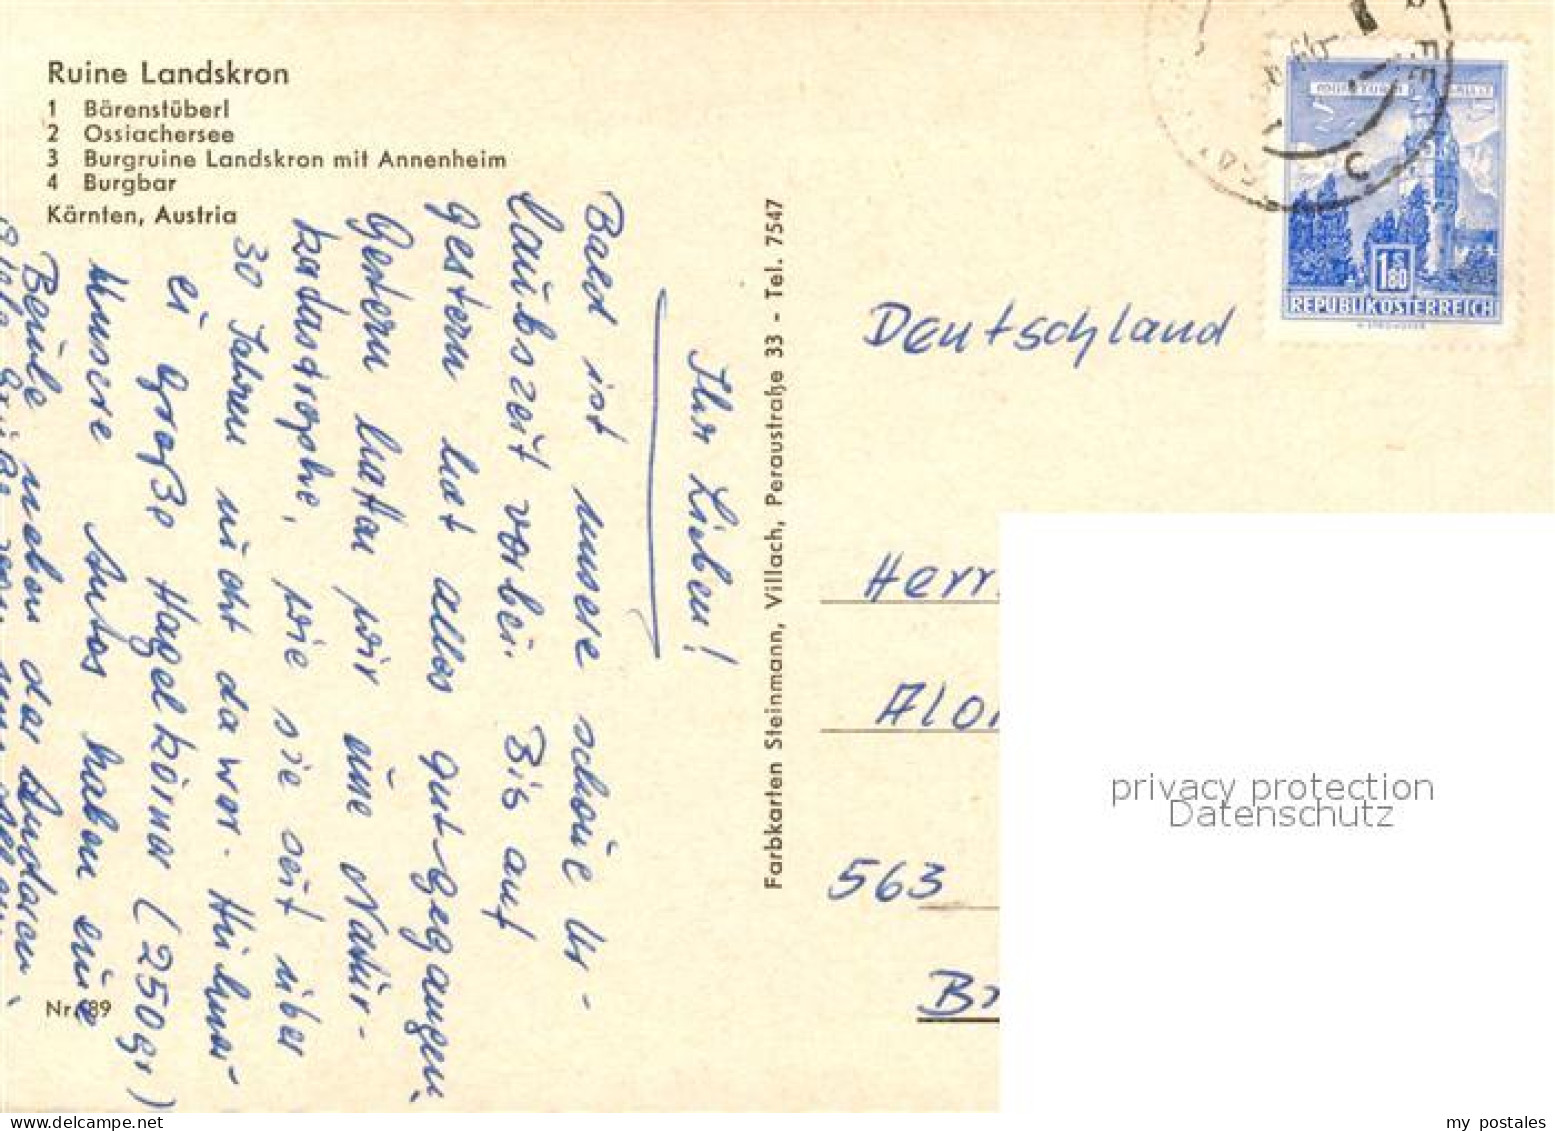 Ruine Landskron
1 Bärenstüberl
2 Ossiachersee
3 Burgruine Landskron mit Annenheim
4 Burgbar
Kärnten, Austria
Ihr Lieben!
Bald ist unsere schöne Ur-
laubszeit vorbei. Bis auf
gestern hat alles gut gegangen.
Gestern hatten wir eine Natur-
katastrophe, wie sie seit über
30 Jahren nicht da war. Hühner-
ei große Hagelkörner (250gr)
Unsere Autos haben eine
Beule neben der anderen.
Nr. 89
Farbkarten Steinmann, Villach, Peraustraße 33 - Tel. 7547
1 S 80
REPUBLIK ÖSTERREICH
Deutschland
Herr
Alo
563
privacy protection
Datenschutz
my postales